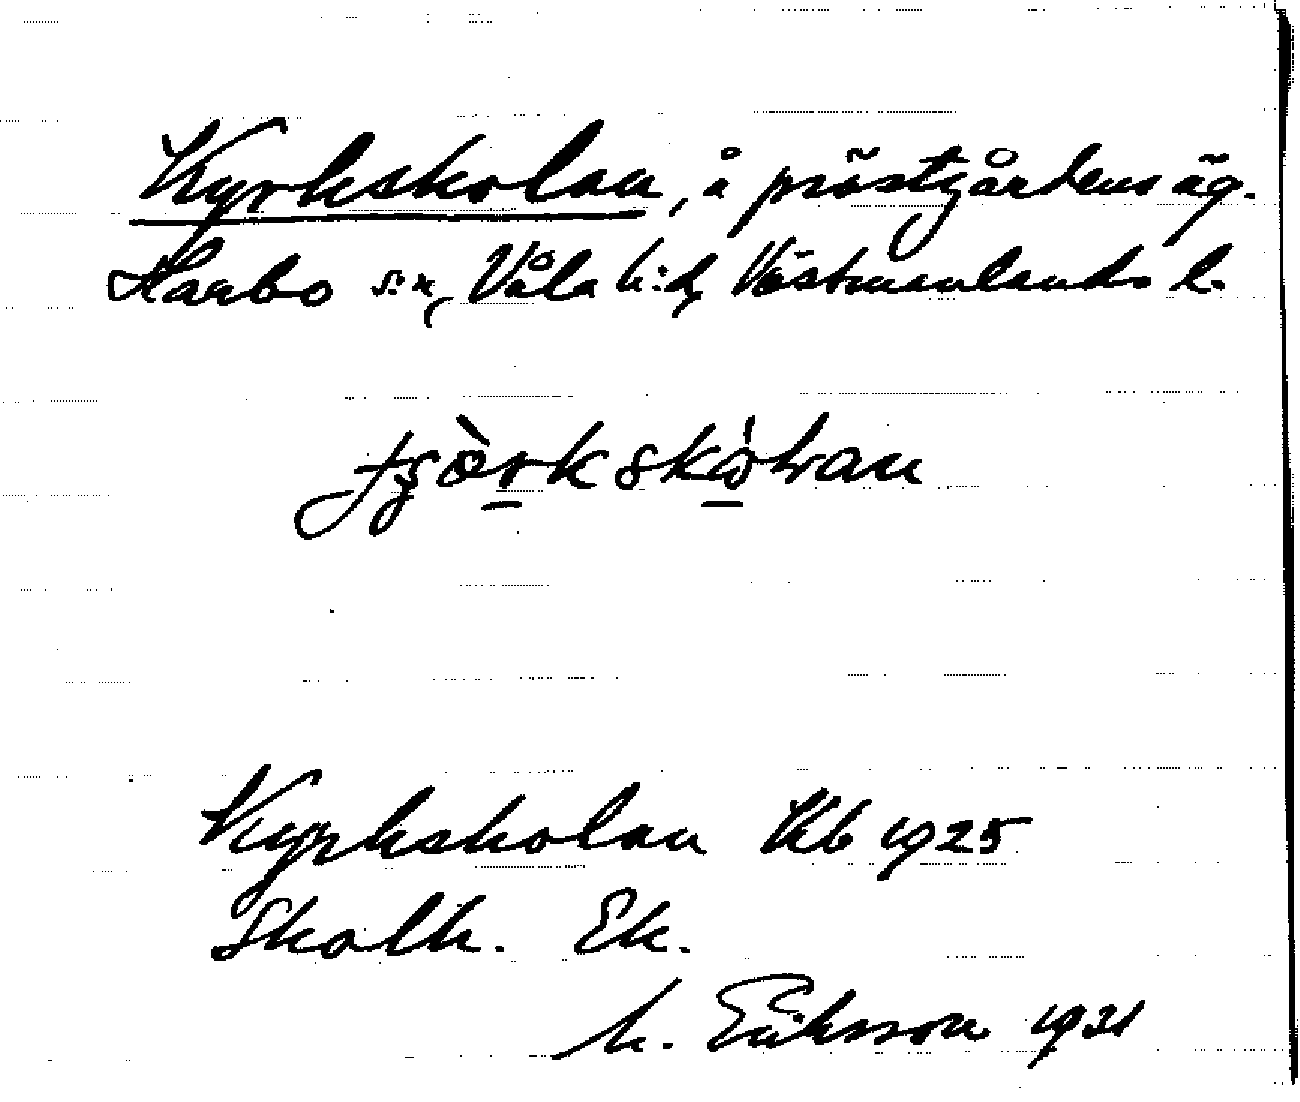 Kyrkskolan, å prästgårdens äg.
Harbo s:n, Våla h:d, Västmanlands l.
Kyrkskolan Kb 1925
Skolh. Ek.
M. Eriksson 1931